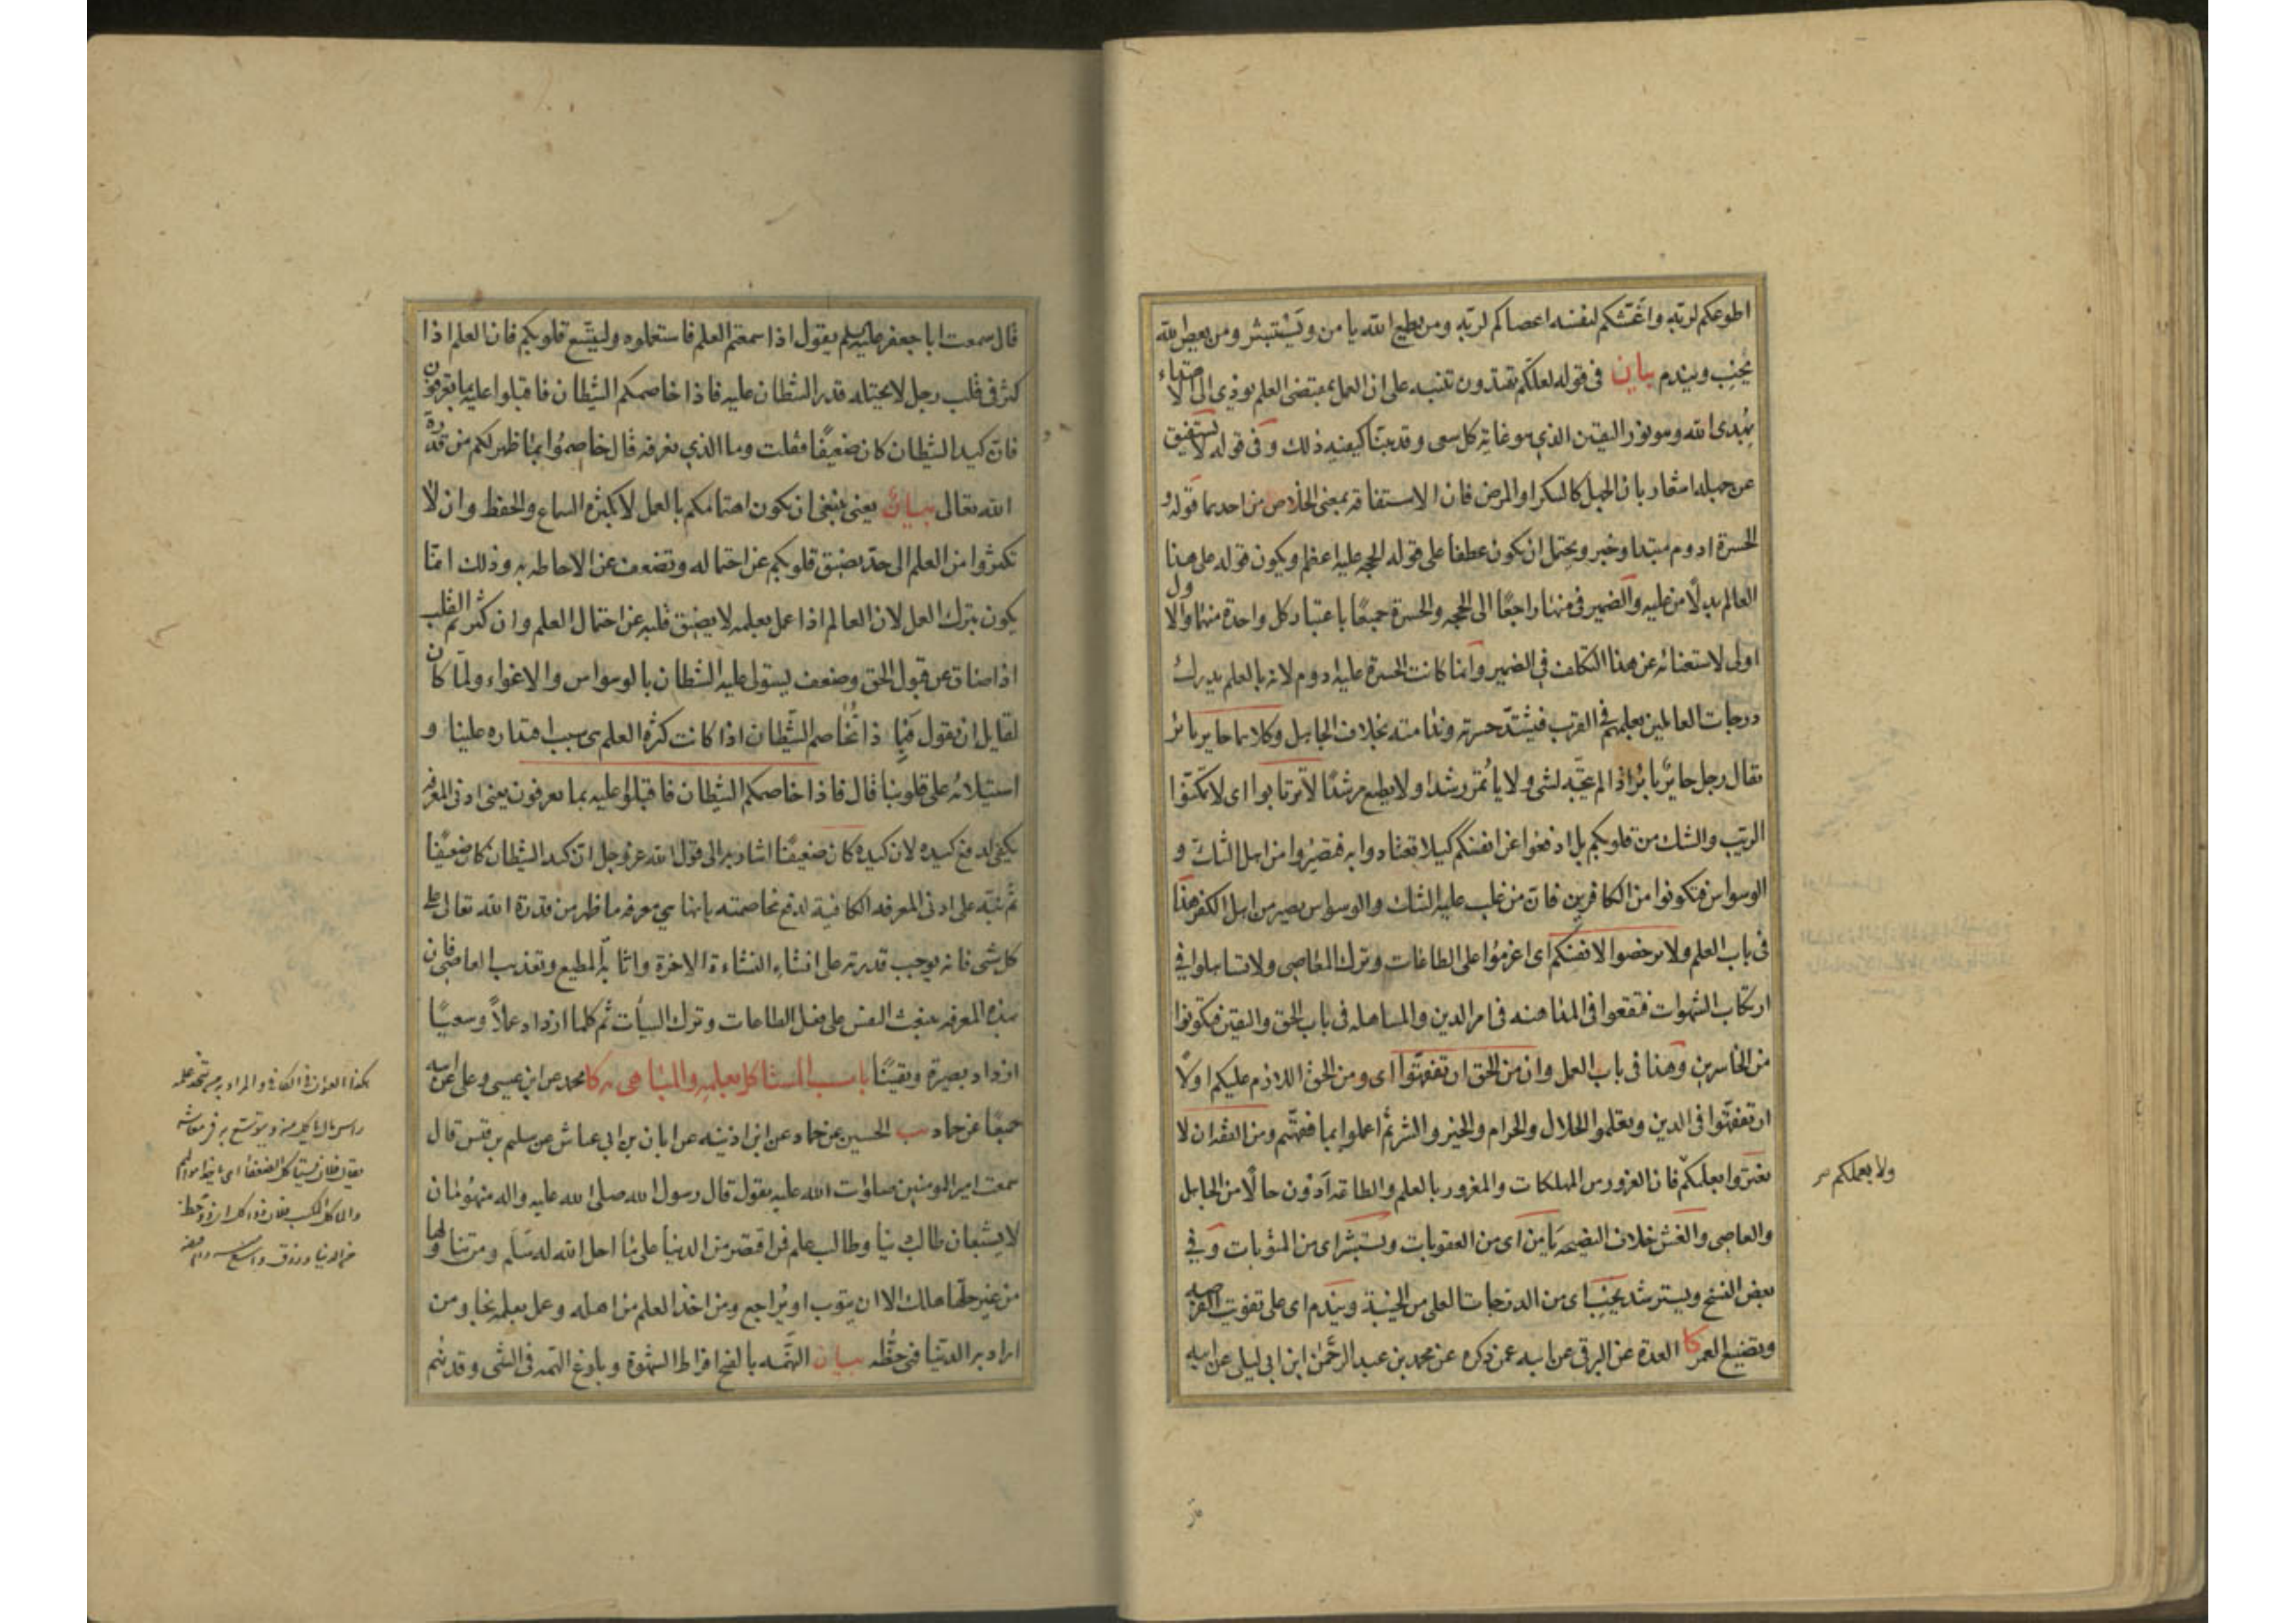 اطوعكم لربه واغشكم لنفسه اعصاكم لربه ومن يطع الله يامن ويستبشر ومن يعص الله
يخب ويندم بيان في قوله لعلكم تهتدون تنبيه على ان العمل بمقتضى العلم يودي الى الاهتداء
بهدى الله وهو نور اليقين الذي هو غاية كل سعى وقد بينا كيفيه ذلك وفى قوله لا يستفيق
عن جهله اشعار بان الجهل كالسكر او المرض فان الاستفاقه بمعنى الخلاص من احدهما قوله و
الحسرة ادوم مبتدا وخبر ويحتمل ان يكون عطفا على قوله الحجه عليه اعظم ويكون قوله على هذا
العالم بدلا من عليه والضمير في منها راجعا الى الحجه والحسرة جميعا باعتبار كل واحدة منهما والاول
اولى لاستغنائه عن هذا التكلف في الضمير وانما كانت الحسرة عليه ادوم لانه بالعلم يدرك
درجات العالمين بعلمهم في القرب فيشتد حسرته وندامته بخلاف الجاهل وكلاهما حاير باير
يقال رجل حاير باير اذا لم يتجه لشى ولا ياتمر رشدا ولا يطيع مرشدا لا ترتابوا اى لا تمكنوا
الريب والشك من قلوبكم بل ادفعوا عن انفسكم كيلا تعتادوا به فتصيروا من اهل الشك و
الوسواس فتكونوا من الكافرين فان من غلب عليه الشك والوسواس يصير من اهل الكفر هذا
فى باب العلم ولا ترخصوا لانفسكم اى اعزموا على الطاعات وترك المعاصى ولا تساهلوا في
ارتكاب الشهوات فتقعوا فى المداهنه فى امر الدين والمساهله فى باب الحق واليقين فتكونوا
من الخاسرين وهذا فى باب العمل وان من الحق ان تفقهوا اى ومن الحق اللازم عليكم اولا
ان تفقهوا فى الدين وتعلموا الحلال والحرام والخير والشر ثم اعملوا بما فقهتم ومن الفقه ان لا
تغتروا بعلمكم فان الغرور من المهلكات والمغرور بالعلم والطاعه ادون حالا من الجاهل
ولا بعملكم
والعاصى والغش خلاف النصيحه يامن اى من العقوبات ويستبشر اى من المثوبات وفي
بعض النسخ ويسترشد يخب اى من الدرجات العلى من الخيبة ويندم اى على تفويت الفرصه
وتضييع العمر كا العدة عن البرقى عن ابيه عمن ذكره عن محمد بن عبد الرحمن ابن ابى ليلى عن ابيه
قال سمعت ابا جعفر عليه السلم يقول اذا سمعتم العلم فاستعملوه وليتسع قلوبكم فان العلم اذا
كثر فى قلب رجل لا يحتمله قدر الشيطان عليه فاذا خاصمكم الشيطان فاقبلوا عليه بما تعرفون
فان كيد الشيطان كان ضعيفا فقلت وما الذي نعرفه قال خاصموا بما ظهر لكم من قدرة
الله تعالى بيان يعنى ينبغى ان يكون اهتمامكم بالعمل لا بكثرة السماع والحفظ وان لا
تكثروا من العلم الى حد يضيق قلوبكم عن احتماله وتضعف عن الاحاطه به وذلك انما
يكون بترك العمل لان العالم اذا عمل بعلمه لا يضيق قلبه عن احتمال العلم وان كثر ثم القلب
اذا ضاق عن قبول الحق وضعف يستولى عليه الشيطان بالوسواس والاغواء ولما كان
لقايل ان يقول فبما ذا نخاصم الشيطان اذا كانت كثرة العلم هى سبب اقتداره علينا و
استيلائه على قلوبنا قال فاذا خاصمكم الشيطان فاقبلوا عليه بما تعرفون يعنى ادنى المعرفه
يكفى لدفع كيده لان كيده كان ضعيفا اشار به الى قول الله عز وجل ان كيد الشيطان كان ضعيفا
ثم نبه على ادنى المعرفه الكافية لدفع مخاصمته بانها هي معرفه ما ظهر من قدرة الله تعالى على
كل شى فانه يوجب قدرته على انشاء النشاءة الاخرة واثابه المطيع وتعذيب العاصى فان
بهذه المعرفه ينبعث النفس على فعل الطاعات وترك السيات ثم كلما ازداد عملا وسعيا
ازداد بصيرة ويقينا باب المستاكل بعلمه والمباهى به كا محمد عن ابن عيسى وعلى عن ابيه
جميعا عن حماد يب الحسين عن حماد عن ابن اذينه عن ابان بن ابى عياش عن سليم بن قيس قال
سمعت امير المومنين صلوات الله عليه يقول قال رسول الله صلى الله عليه واله منهومان
لا يشبعان طالب دنيا وطالب علم فمن اقتصر من الدنيا على ما احل الله له سلم ومن تناولها
من غير حلها هلك الا ان يتوب او يراجع ومن اخذ العلم من اهله وعمل بعلمه نجا ومن
اراد به الدنيا فهى حظه بيان النهمه بالفتح افراط الشهوة وبلوغ الهمه فى الشى وقد نهم
هكذا العنوان فى الكافى والمراد به من يتخذ علمه
راس مال ياكل منه ويتوسع به فى معاشه
يقال فلان يستاكل الضعفاء اى ياخذ اموالهم